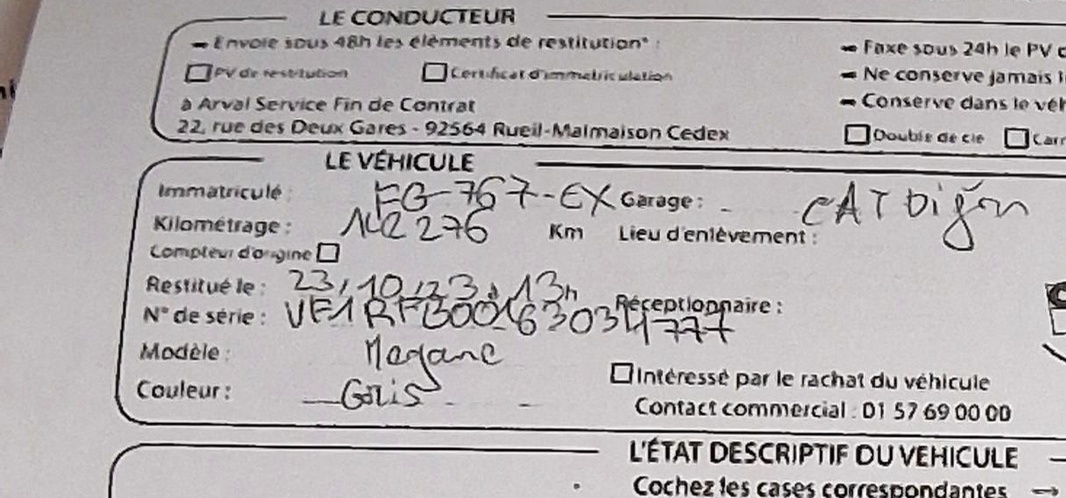 LE CONDUCTEUR
Envoie sous 48h les éléments de restitution* :
PV de restitution Certificat d'immatriculation
à Arval Service Fin de Contrat
22, rue des Deux Gares - 92564 Rueil-Malmaison Cedex
Faxe sous 24h le PV
Ne conserve jamais
Conserve dans le
Double de clé
LE VÉHICULE
Immatriculé : FG-767-EX Garage : CAT Dijon
Kilométrage : 142276 Km Lieu d'enlèvement :
Compteur d'origine
Restitué le : 23/10/23 à 13h Réceptionnaire :
N° de série :
Modèle : Megane
Couleur : Gris
Intéressé par le rachat du véhicule
Contact commercial : 01 57 69 00 00
L'ÉTAT DESCRIPTIF DU VEHICULE
Cochez les cases correspondantes